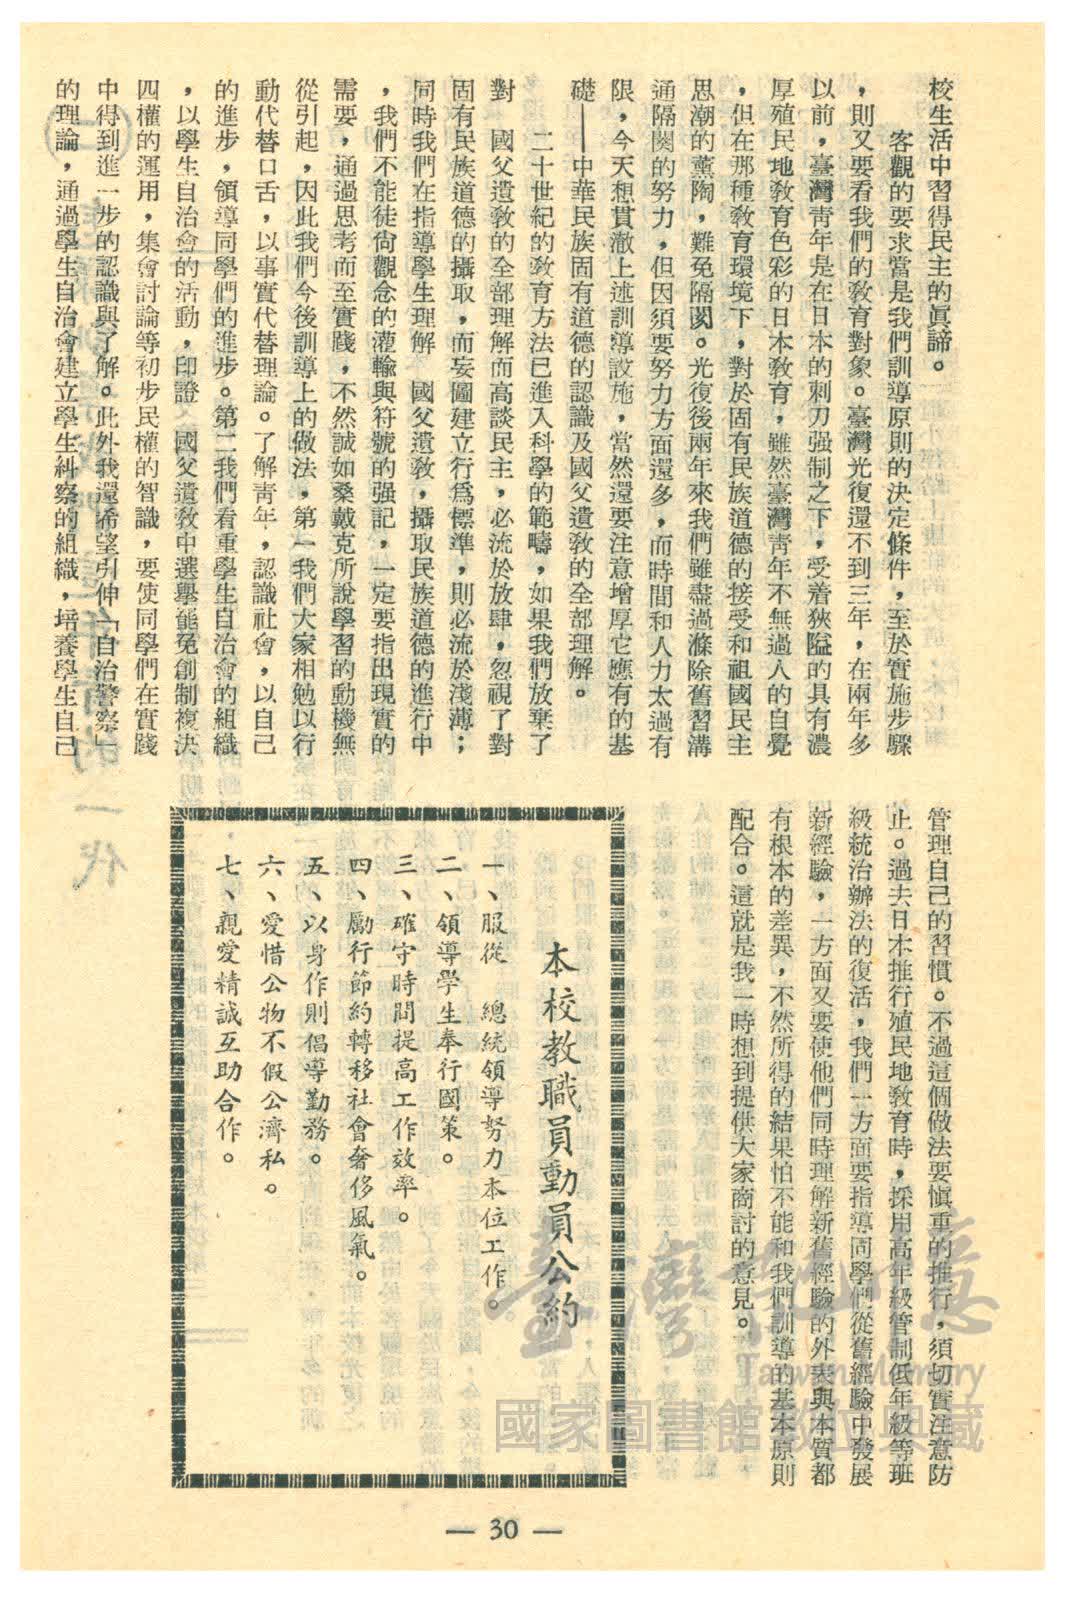 校生活中習得民主的眞諦。
客觀的要求當是我們訓導原則的決定條件，至於實施步驟
，則又要看我們的敎育對象。臺灣光復還不到三年，在兩年多
以前，臺灣靑年是在日本的刺刀强制之下，受着狹隘的具有濃
厚殖民地敎育色彩的日本敎育，雖然臺灣靑年不無過人的自覺
，但在那種敎育環境下，對於固有民族道德的接受和祖國民主
思潮的薰陶，難免隔閡。光復後兩年來我們雖盡過滌除舊習溝
通隔閡的努力，但因須要努力方面還多，而時間和人力太過有
限，今天想貫澈上述訓導設施，當然還要注意增厚它應有的基
礎——中華民族固有道德的認識及國父遺敎的全部理解。
二十世紀的敎育方法已進入科學的範疇，如果我們放棄了
對　國父遺敎的全部理解而高談民主，必流於放肆，忽視了對
固有民族道德的攝取，而妄圖建立行爲慓準，則必流於淺薄；
同時我們在指導學生理解　國父遺敎，攝取民族道德的進行中
，我們不能徒尙觀念的灌輸與符號的强記，一定要指出現實的
需要，通過思考而至實踐，不然誠如桑戴克所說學習的動機無
從引起，因此我們今後訓導上的做法，第一我們大家相勉以行
動代替口舌，以事實代替理論。了解靑年，認識社會，以自己
的進步，領導同學們的進步。第二我們看重學生自治會的組織
，以學生自治會的活動，印證　國父遺敎中選舉能免創制複決
四權的運用，集會討論等初步民權的智識，要使同學們在實踐
中得到進一步的認識與了解。此外我還希望引伸「自治警察」
的理論，通過學生自治會建立學生糾察的組織，培養學生自己
管理自己的習慣。不過這個做法要愼重的推行，須切實注意防
止。過去日本推行殖民地敎育時，採用高年級管制低年級等班
級統治辦法的復活，我們一方面要指導同學們從舊經驗中發展
新經驗，一方面又要使他們同時理解新舊經驗的外表與本質都
有根本的差異，不然所得的結果怕不能和我們訓導的基本原則
配合。這就是我一時想到提供大家商討的意見。
本校教職員動員公約
一、服從　總統領導努力本位工作。
二、領導學生奉行國策。
三、確守時間提高工作效率。
四、勵行節約轉移社會奢侈風氣。
五、以身作則倡導勤務。
六、愛惜公物不假公濟私。
七、親愛精誠互助合作。
臺灣記憶
Taiwan Memory
國家圖書館數位典藏
— 30 —